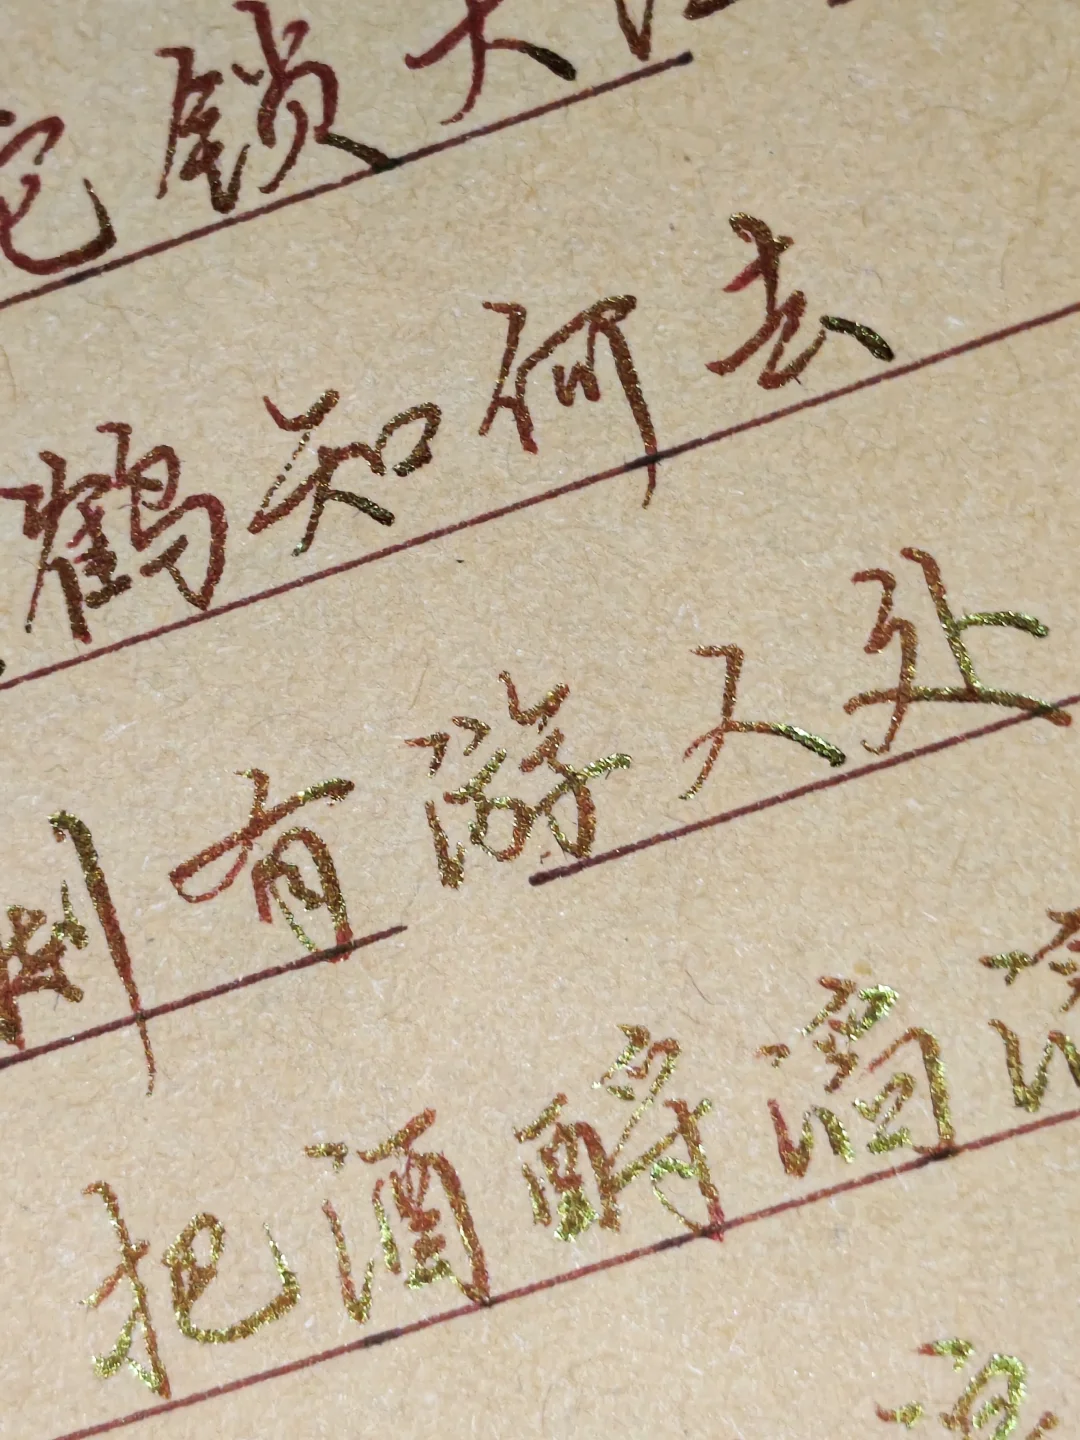 锁大
鹤知何去
剩有游人处
把酒酹滔